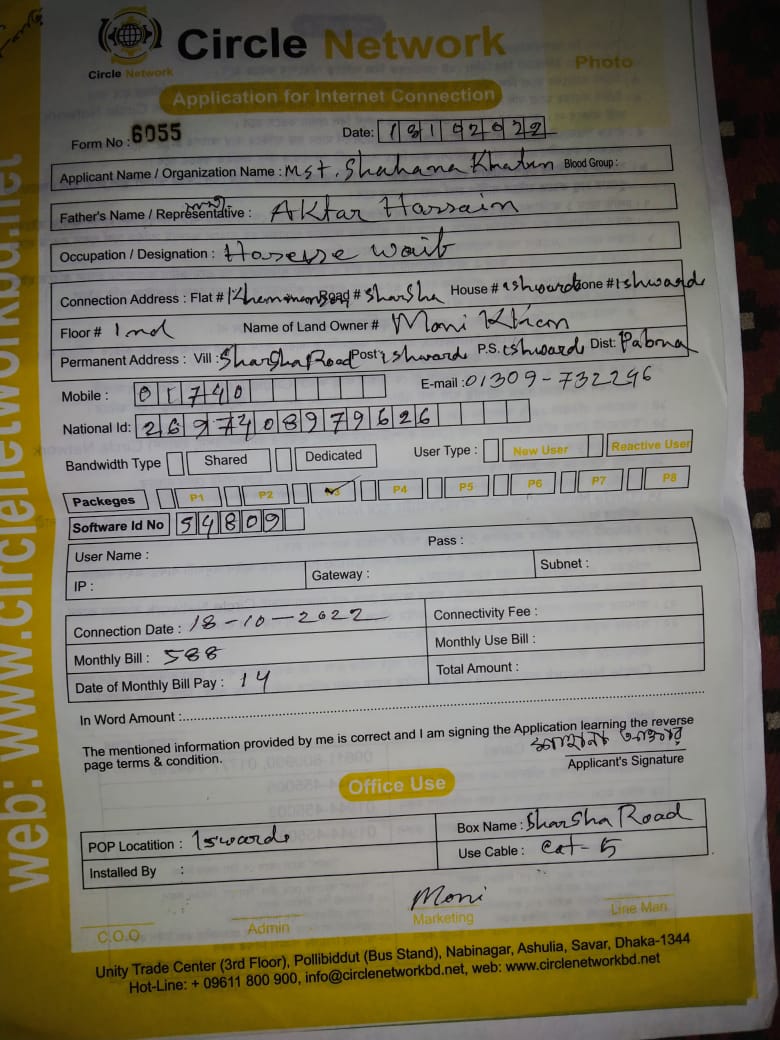 Circle Network
Circle Network
Photo
Application for Internet Connection
Form No : 6055
Date: 18102022
Applicant Name / Organization Name : Mst. Shahana Khatun Blood Group :
Father's Name / Representative : Aktar Hassain
Occupation / Designation :
Connection Address : Flat # Road # SharSha House # Zone #
Floor # 1nd Name of Land Owner # Moni Khan
Permanent Address : Vill : SharSha Road Post: P.S. Dist: Pabna
Mobile : 01740 E-mail : 01309-732296
National Id: 2697408979626
Bandwidth Type Shared Dedicated User Type : New User Reactive User
Packeges P1 P2 P3 P4 P5 P6 P7 P8
Software Id No 54809
User Name : Pass :
IP : Gateway : Subnet :
Connection Date : 18-10-2022 Connectivity Fee :
Monthly Bill : 588 Monthly Use Bill :
Date of Monthly Bill Pay : 14 Total Amount :
In Word Amount :
The mentioned information provided by me is correct and I am signing the Application learning the reverse
page terms & condition.
Applicant's Signature
Office Use
POP Locatition : Box Name : SharSha Road
Installed By : Use Cable : Cat-5
Moni
C.O.O. Admin Marketing Line Man
Unity Trade Center (3rd Floor), Pollibiddut (Bus Stand), Nabinagar, Ashulia, Savar, Dhaka-1344
Hot-Line: + 09611 800 900, info@circlenetworkbd.net, web: www.circlenetworkbd.net
web: www.circlenetworkbd.net